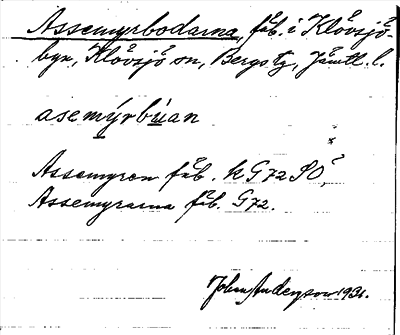 Assemyrbodarna, fäb. i Klövsjö-
byn, Klövsjö sn, Bergs tg, Jämtl. l.
asemýrbúan
Assemyren fäb. k G72 SO
Assemyrarna fäb. G72.
John Anderson 1931.